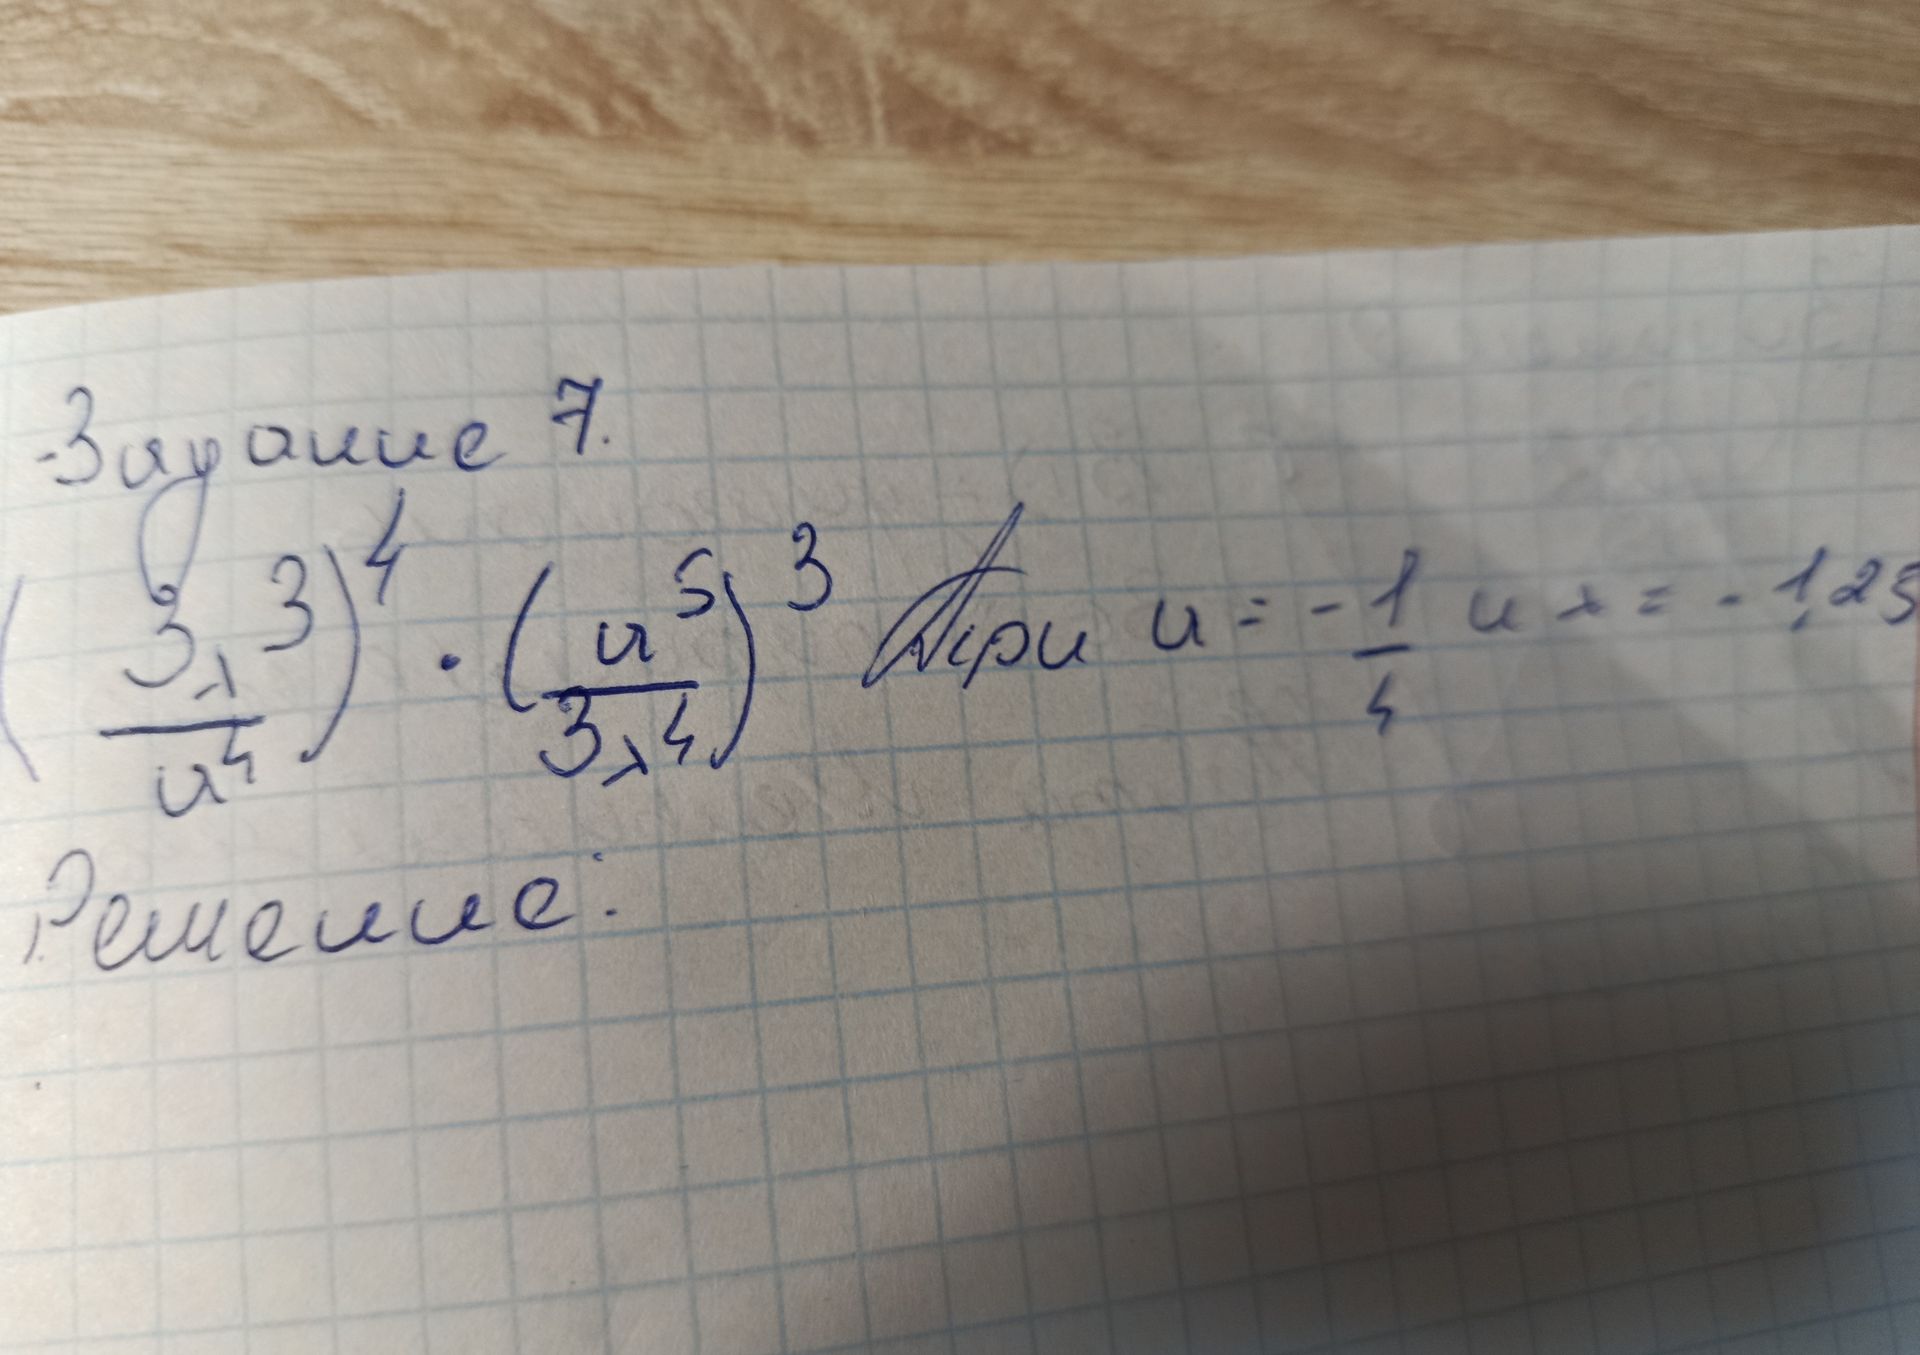 Задание 7.
(3x^3/a^4)^4 · (a^5/3x^4)^3 при a = -1/4 и x = -1,25
Решение: